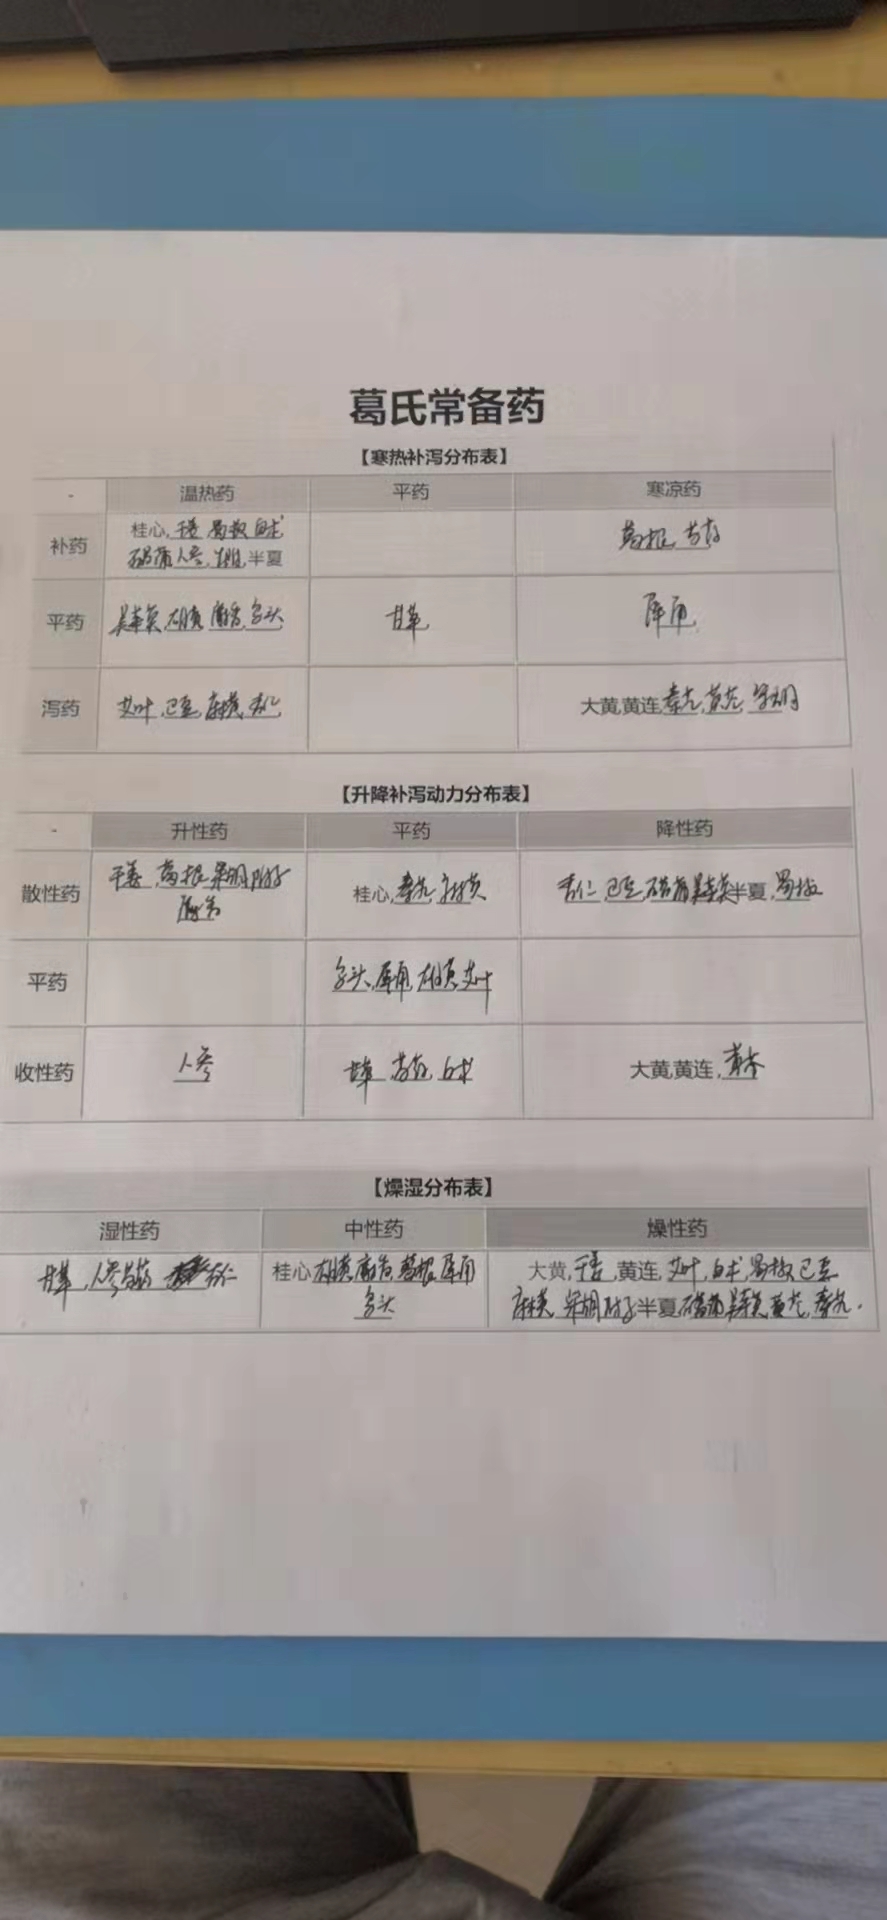 葛氏常备药
【寒热补泻分布表】
- 温热药 平药 寒凉药
补药 桂心,干姜 蜀椒 白术 葛根 芍药
石菖蒲 人参, 附子, 半夏
平药 吴茱萸, 雄黄 麝香, 乌头 甘草 犀角
泻药 艾叶, 巴豆, 麻黄, 杏仁 大黄,黄连,秦艽, 黄芩, 柴胡
【升降补泻动力分布表】
- 升性药 平药 降性药
散性药 干姜, 葛根 柴胡 附子 桂心, 秦艽, 麻黄 杏仁 巴豆 石菖蒲 吴茱萸 半夏, 蜀椒
麝香
平药 乌头, 犀角, 雄黄 艾叶
收性药 人参 甘草 芍药 白术 大黄,黄连, 黄芩
【燥湿分布表】
湿性药 中性药 燥性药
甘草, 人参 芍药 杏仁 桂心 雄黄 麝香, 葛根 犀角 大黄,干姜,黄连,艾叶,白术,蜀椒 巴豆
乌头 麻黄 柴胡 附子 半夏 石菖蒲 吴茱萸 黄芩, 秦艽.